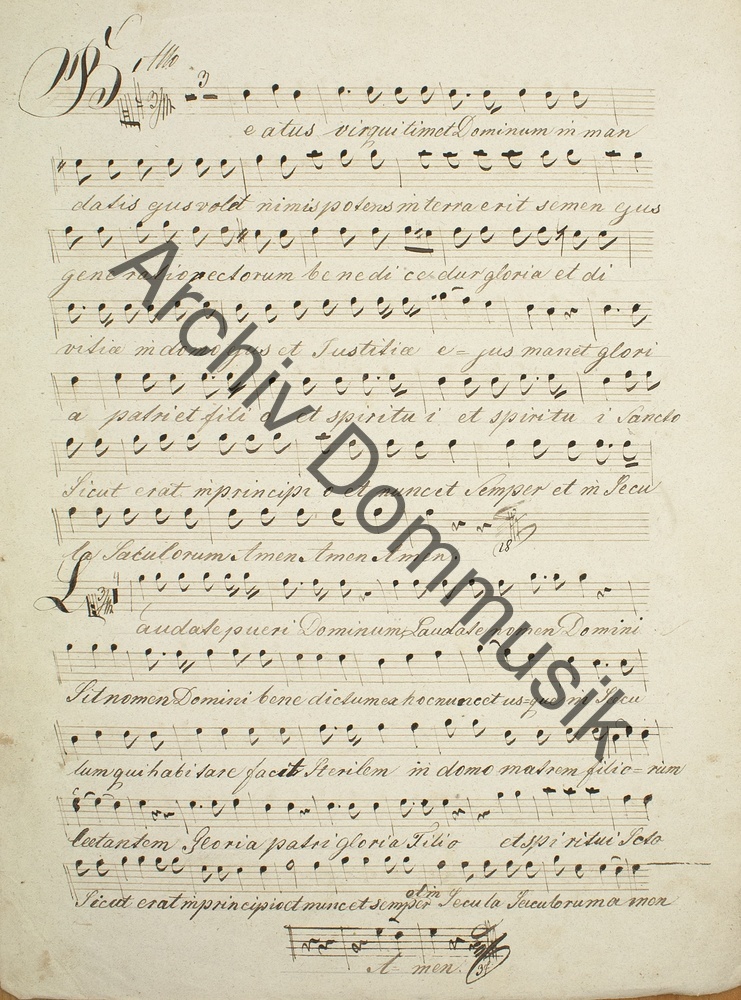 B Allo
3
eatus vir qui timet Dominum in man
datis ejus volet nimis potens in terra erit semen ejus
generatio rectorum benedi ce=dur gloria et di
vitiæ in domo ejus et Justitiæ e= jus manet glori
a patri et fili o et spiritu i et spiritu i Sancto
Sicut erat in principi o et nunc et Semper et in Secu
la Saculorum Amen Amen Amen.
(28
Laudate pueri Dominum, Laudate nomen Domini
Sit nomen Domini bene dictum ex hoc nunc et us=que in Sacu
lum qui habitare facit Sterilem in domo matrem filio=rum
lætantem Gloria patri gloria Filio et spi ritui Scto
Sicut erat in principio et nunc et semper et in Secula Saeculorum a men
A= men.
37
Archiv Dommusik